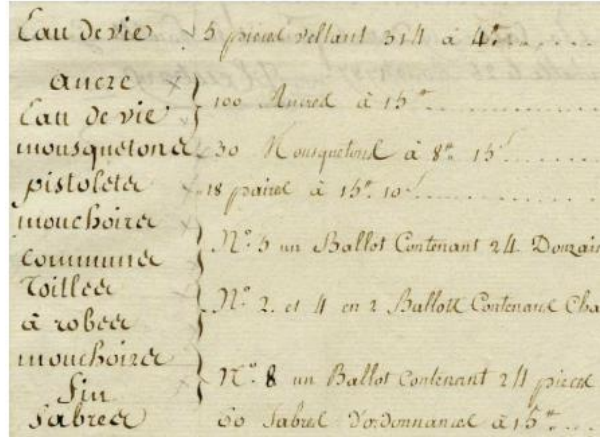 Eau de vie 5 pieces veltant 314 à 4# ......
ancre
Eau de vie } 100 Ancres à 15# ............
mousquetons 30 Mousquetons à 8# 15s ......
pistolets 18 paires à 15# 10s ............
mouchoirs
communs } N° 5 un Ballot Contenant 24 Douzain
Toilles
à robes } N° 2. et 4 en 2 Ballots Contenans Cha
mouchoirs
fin } N° 8 un Ballot Contenant 24 pieces
Sabres 60 Sabres D'ordonnances à 15# ....